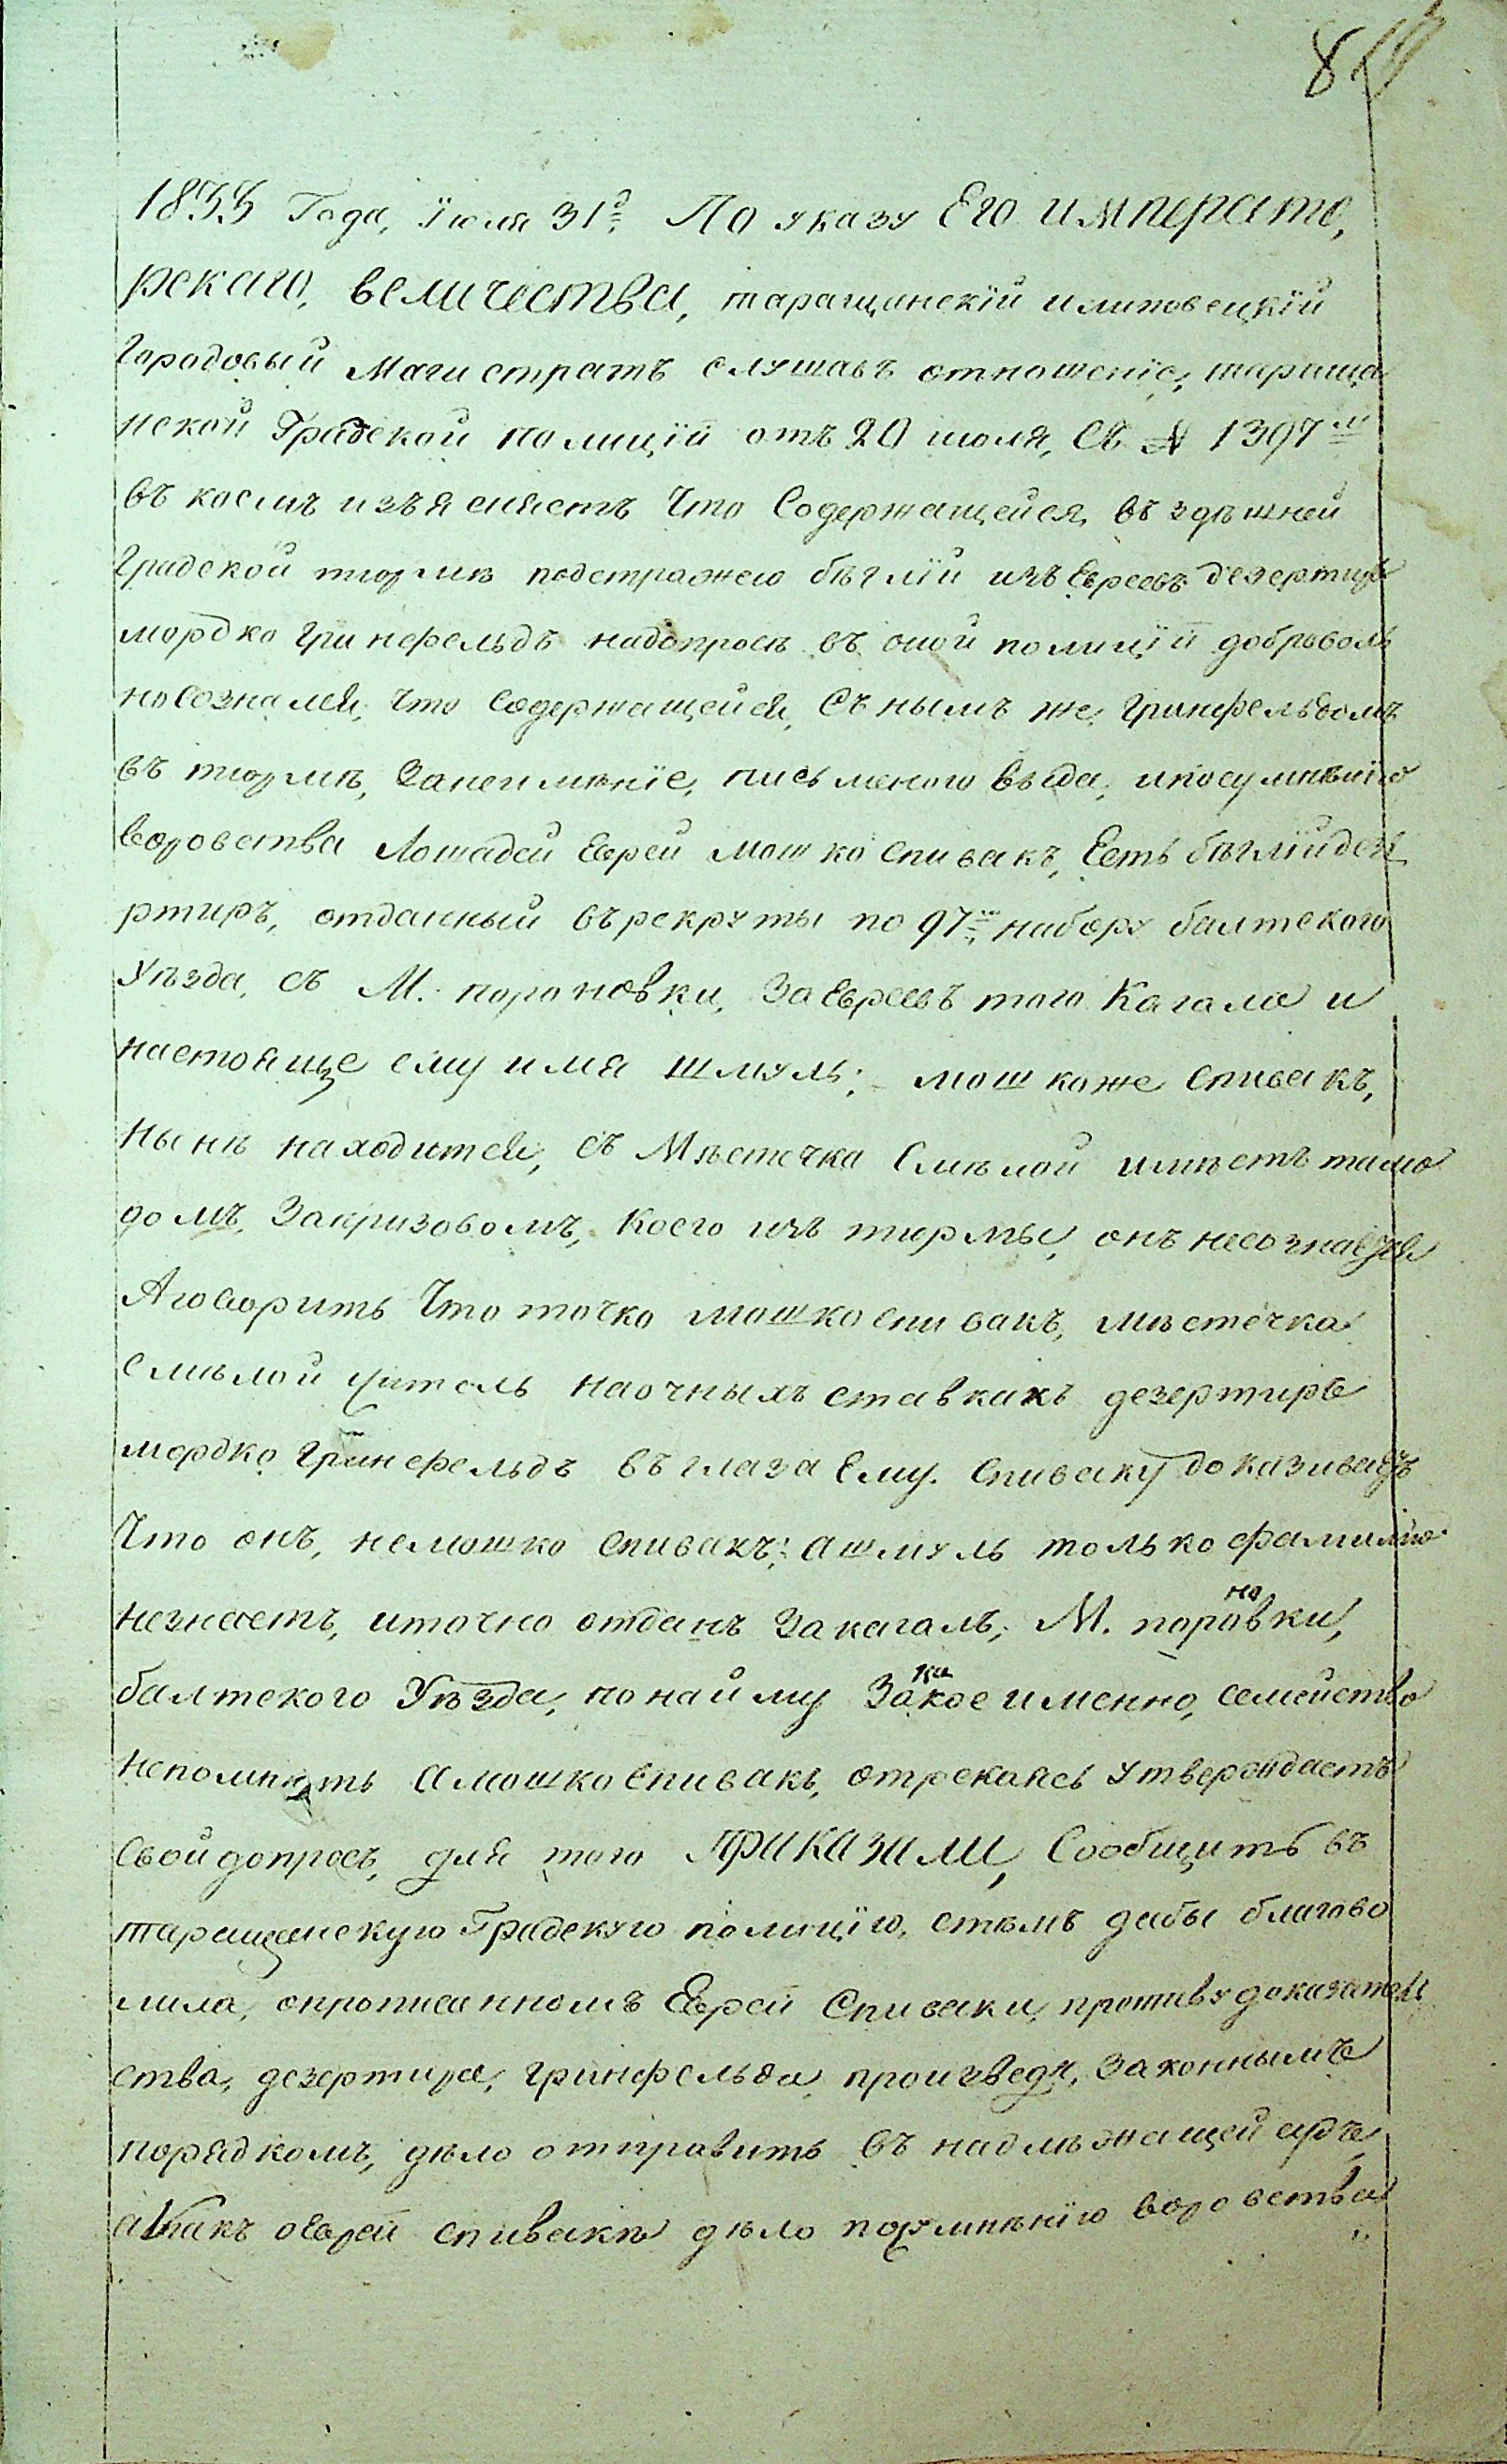 1833 Года, Їюля 31<sup>д</sup>: По указу Его императо,
рскаго, величества, таращанскїй илиповецкїй
Городовый Магистратъ слушавъ отношенїе, тараща
нской Градской полицїи отъ 20 июля, съ № 1397<sup>м</sup>
въ коемъ изъясняетъ Что Содержащейся въ здѣшней
Градской тюрмѣ подстражею бѣглїй изъ Евреевъ дезертиръ
мордко гринфельдъ надопросѣ въ оной полицїи доброволь
носознался, что содержащейся, Съ нымъ же, гринфельдомъ
въ тюрмѣ, Занеимѣнїе, письменого выда, ипосумнѣнїю
воровства Лошадей Еврей мошко спивакъ, Есть бѣглїйдезе
ртиръ, отданный върекруты по 97<sup>му</sup> набору балтского
Уѣзда, съ М. пороновки, За Евреевъ того Кагала и
настояще ему имя шмуль; мошкоже спивакъ,
нынѣ находится, съ Мѣстечка Смѣлой имѣетъ тамо
домъ, Закризовомъ, коего изъ тюрмы, онъ несознается
Аговоритъ Что точко мошко спивакъ, мѣстечка
смѣлой житель наочныхъ ставкахъ дезертиръ
мордко гринфельдъ въглаза Ему. спиваку доказиваетъ
Что онъ, немошко спивакъ; ашмуль только фамилїю
незнаетъ, иточно отданъ закагалъ, М. поро<sup>но</sup>вки,
балтского Уѣзда, понайму За<sup>ка</sup>кое именно, семейство
непомнитъ Амошкоспивакъ, отрекаясь утверждаетъ
свойдопросъ, для того ПРИКАЗАЛИ, Сообщить въ
таращанскую Градскую полицїю, стѣмъ дабы благово
лила, опрописанномъ Еврей Спиваки, противу доказатель
ства, дезертира, гринфельда, произведя, Законнымъ
порядкомъ, дѣло отправить въ надлѣжащей судъ,
атакъ оеврей спивакѣ дѣло посумнѣнїю воровства